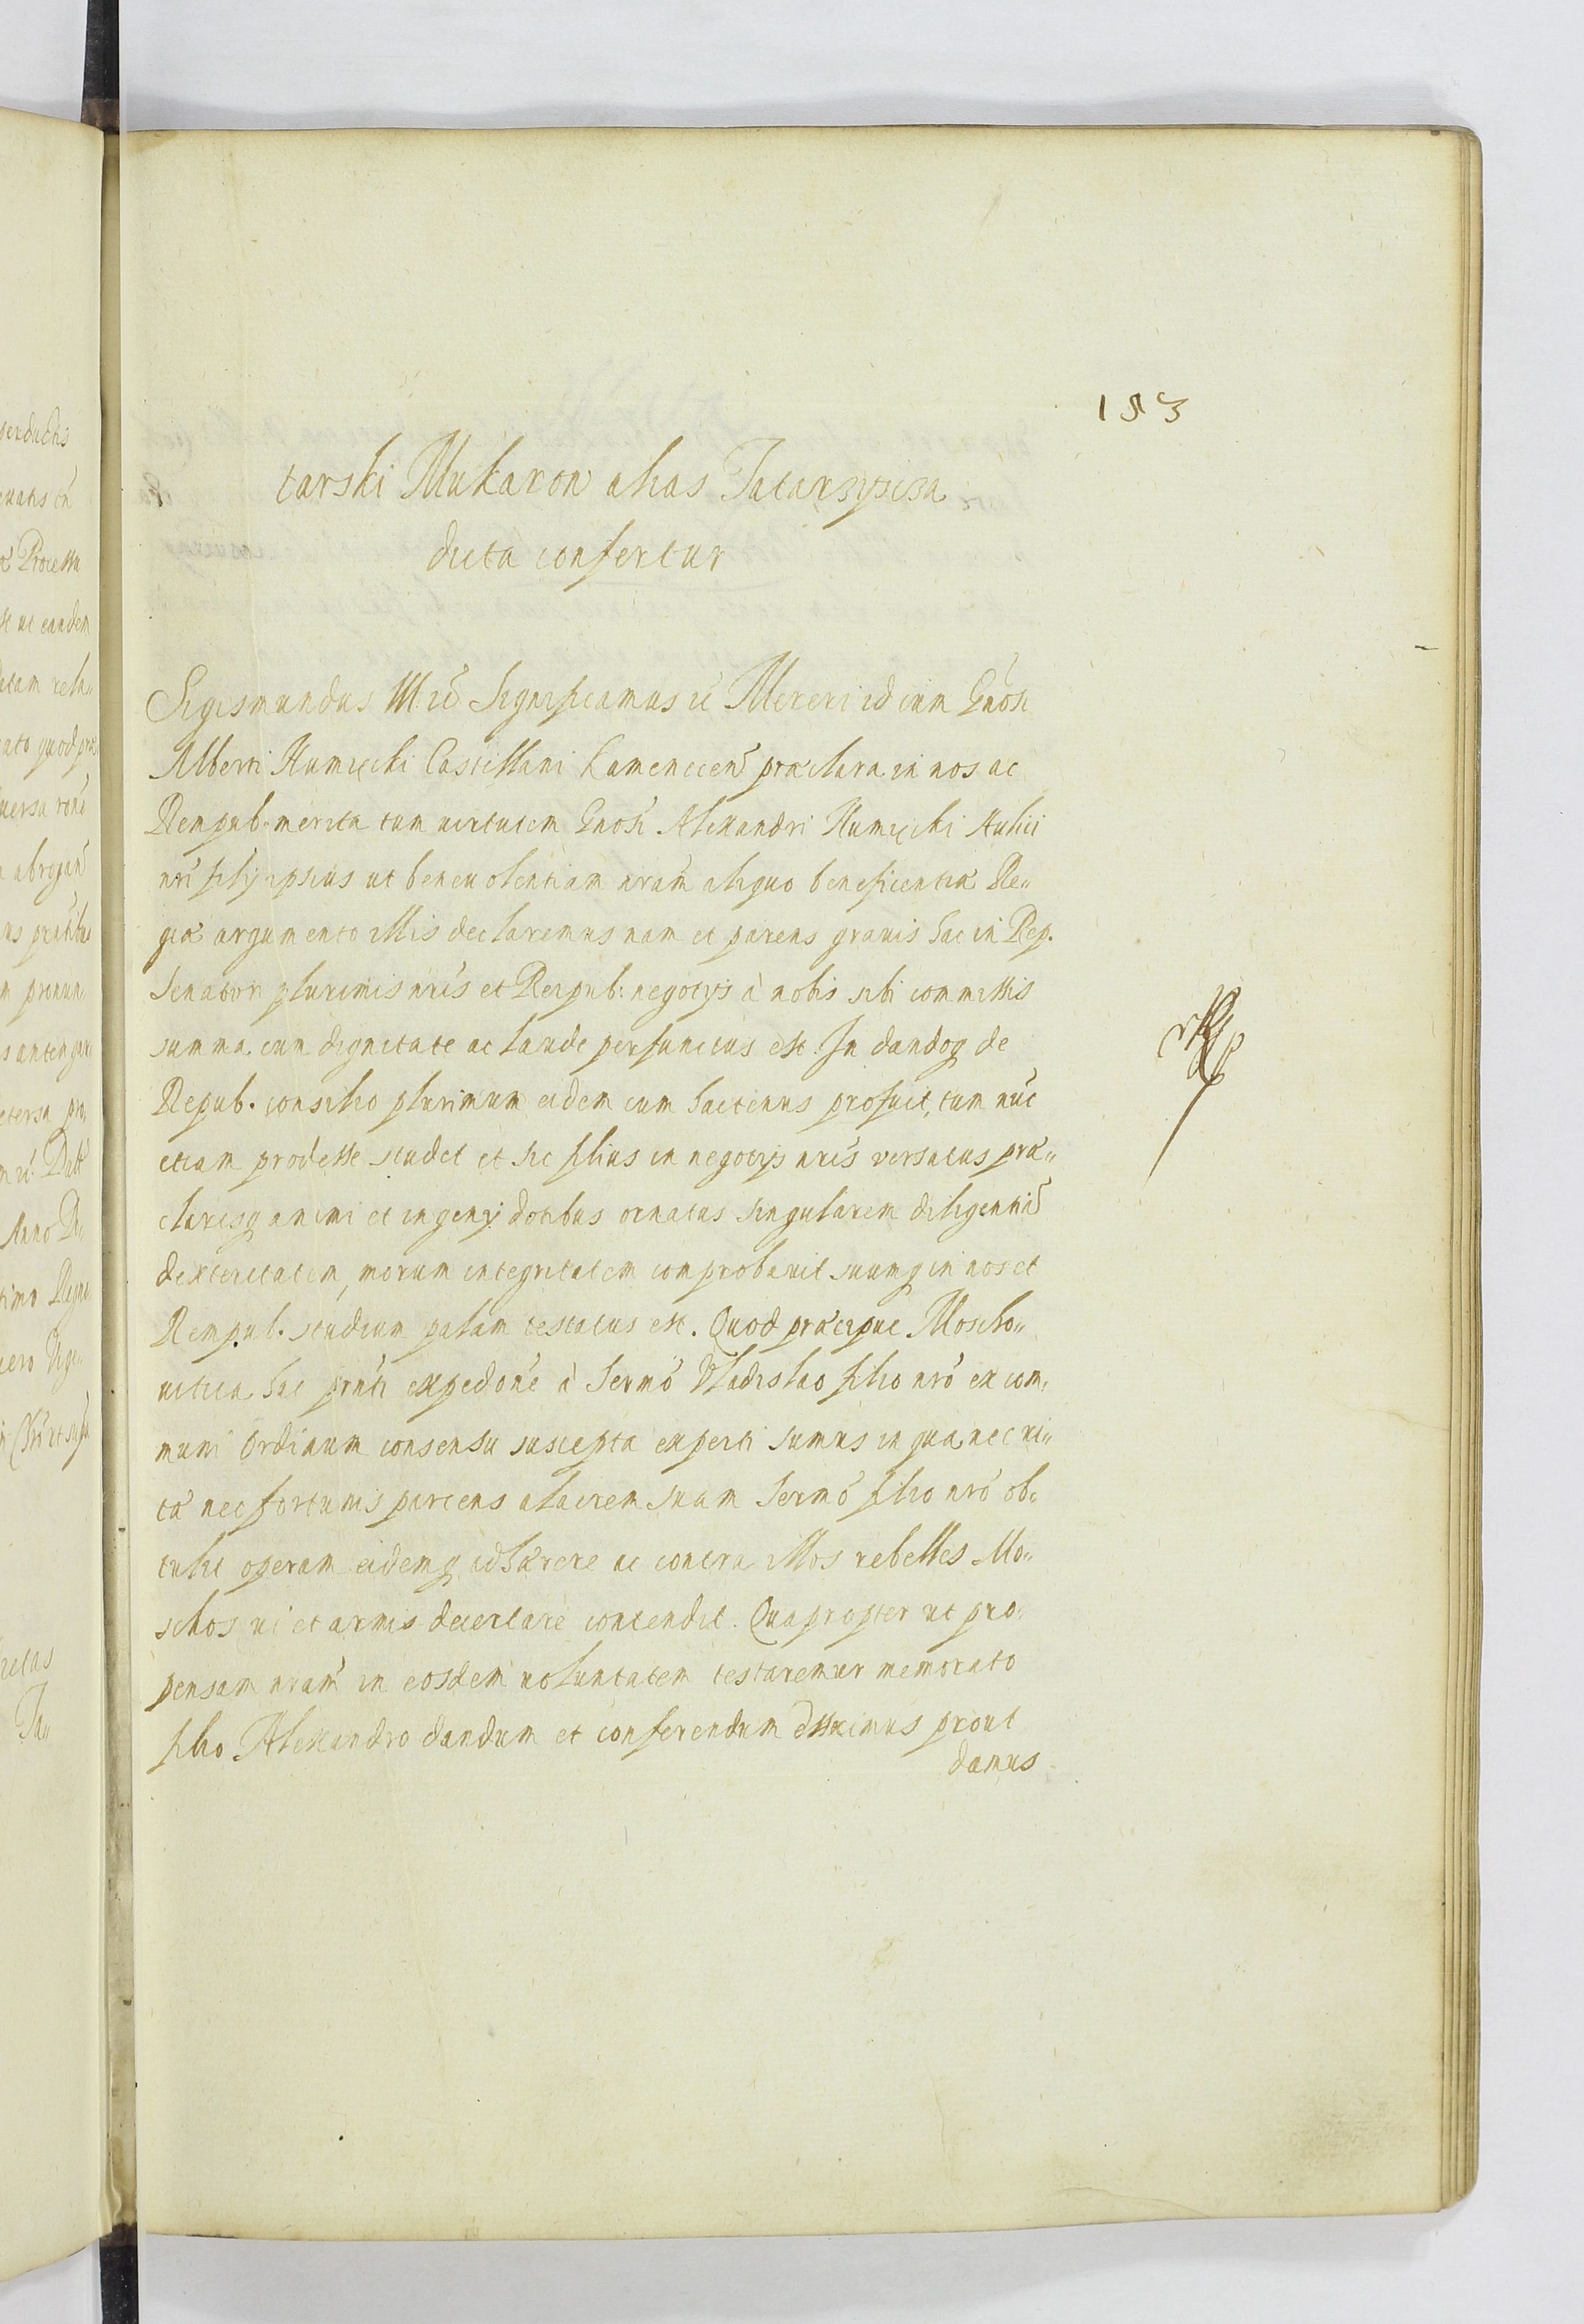 153
tarski Mukarow alias Tatarzysza
dicta confertur
Sigismundus III. etc̄ Significamus etc Mereri id cum Gnōsi
Alberti Humięcki Castellani Camenecen̄ præclara in nos ac
Rempub. merita tum uirtutem Gnōsi Alexandri Humięcki Aulici
nrī filij ipsius ut beneuolentiam nrām aliquo beneficentiæ Re„
giæ argumento illis declaremus nam et parens grauis hac in Rep.
Senator plurimis nrīs et Reipub: negotijs à nobis sibi commissis
summa cum dignitate ac laude perfunctus est. In dandoq de
Repub. consilio plurimum eidem cum hactenus profuit, tum nūc
etiam prodesse studet et hic filius in negotijs nrīs versatus præ„
clarisq animi et ingenij dotibus ornatus singularem diligentiā
dexteritatem, morum integritatem comprobauit suumq in nos et
Rempub. studium palam testatus est. Quod præcipue Moscho„
uitica hac prnti expedōne à Sermō Vladislao filio nrō ex com„
muni Ordinum consensu suscepta experti sumus in qua nec ui„
tæ nec fortunis parcens alacrem suam Sermō filio nrō ob„
tulit operam eidemq adhærere ac contra illos rebelles Mo„
schos ui et armis decertare contendit. Quapropter ut pro„
pensam nrām in eosdem uoluntatem testaremur memorato
filio Alexandro dandum et conferendum duximus prout
damus